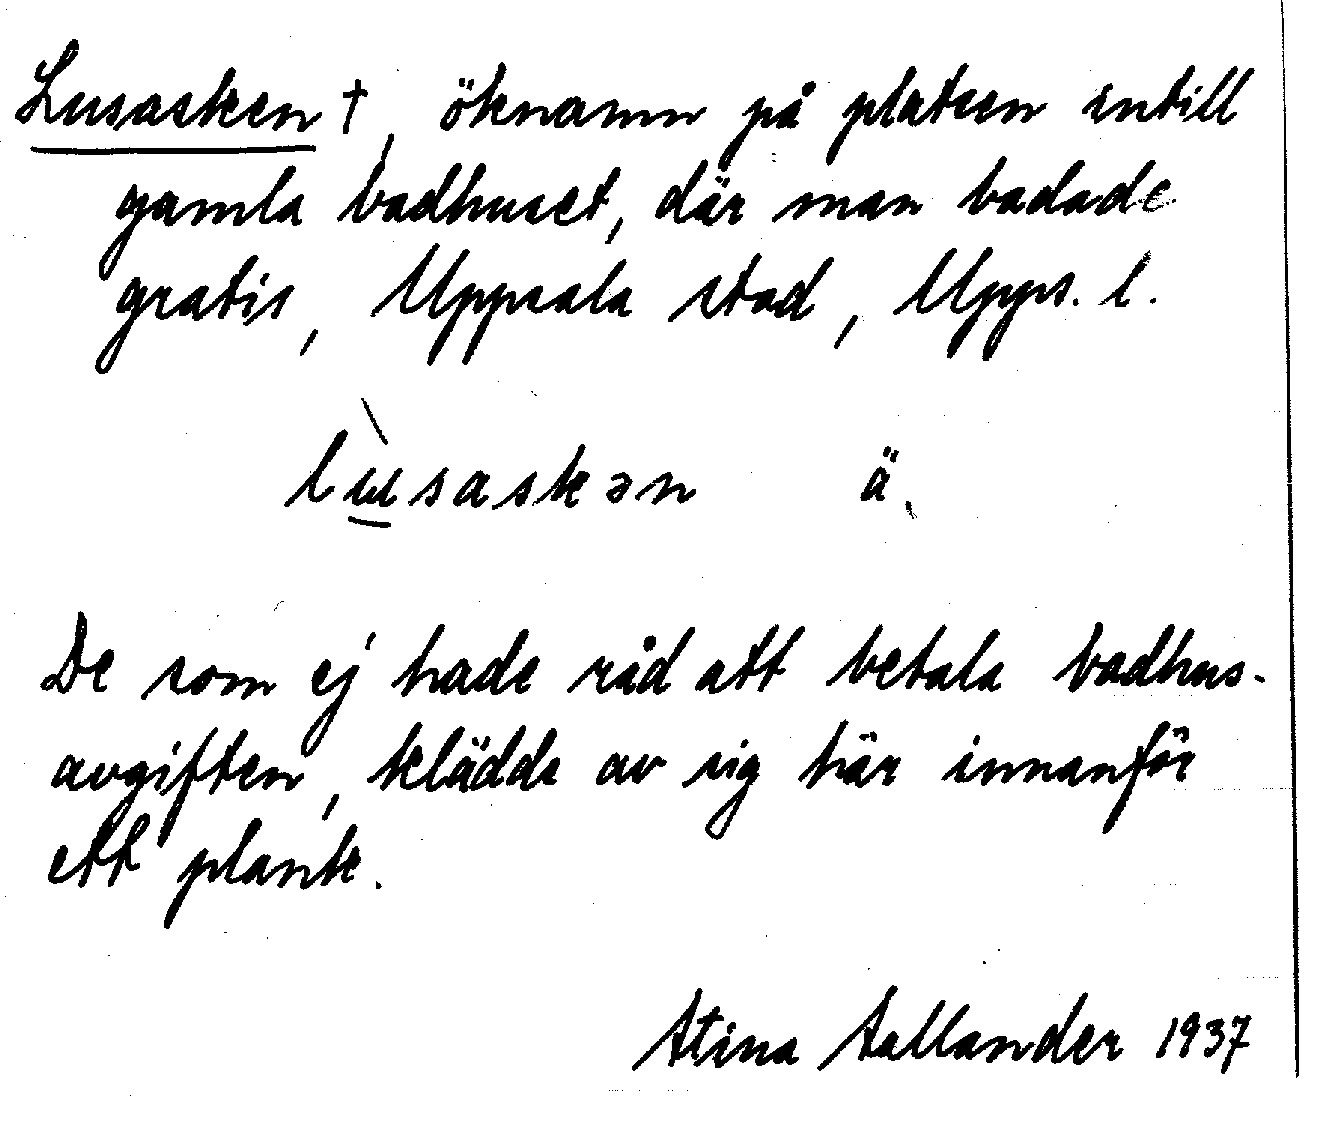 Lusasken †, öknamn på platsen intill
gamla badhuset, där man badade
gratis, Uppsala stad, Upps. l.
lù̱saskən ä.
De som ej hade råd att betala badhus-
avgiften, klädde av sig här innanför
ett plank.
Stina Sallander 1937